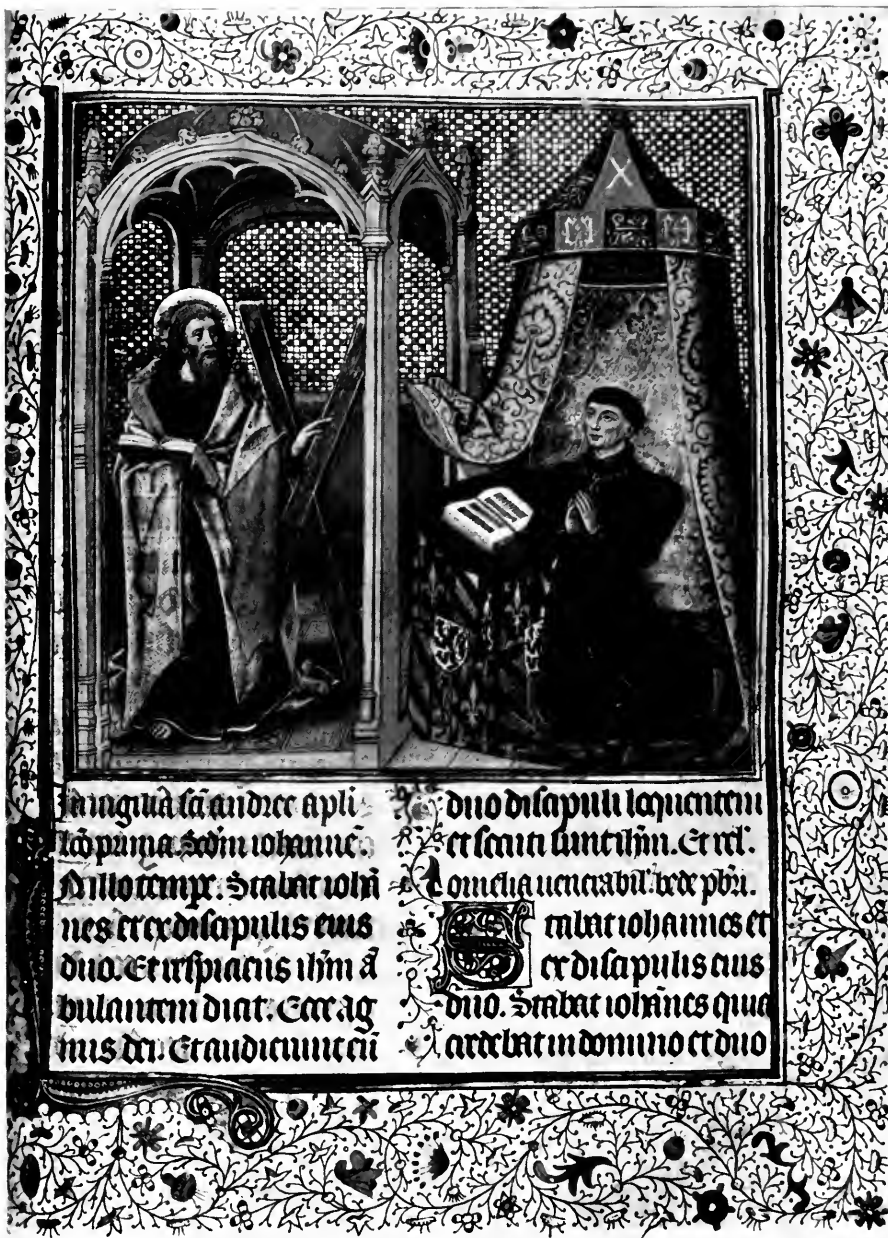 In uigilia scī andree apli
lcō prima. Scdm iohannē.
N illo tempr. Stabat iohā
nes et ex discipulis eius
duo. Et respiciens ihm ā
bulantem dicit. Ecce ag
nus dei. Et audierunt eū
duo discipuli loquentem
et secuti sunt ihm. Et rel.
Omelia uenerabil. bede pbri.
Stabat iohannes et
ex discipulis eius
duo. Stabat iohānes quia
in domino et duo